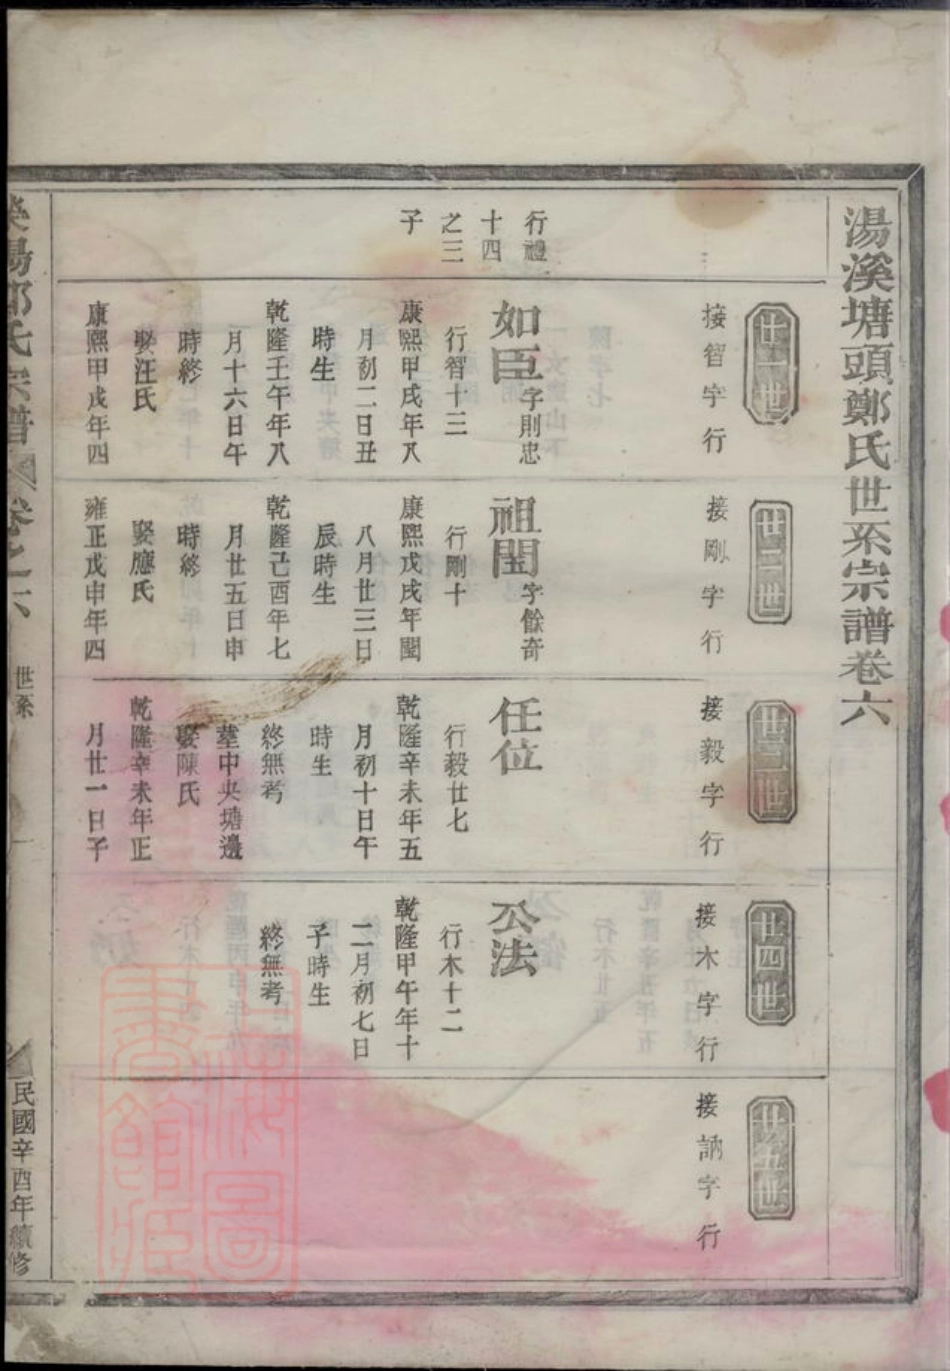 湯溪塘頭鄭氏世系宗譜卷六
廿一世
接智字行
行禮
十四
之三
子
如臣字則忠
行智十三
康熙甲戌年八
月初二日丑
時生
乾隆壬午年八
月十六日午
時終
娶汪氏
康熙甲戌年四
廿二世
接剛字行
祖閏字餘奇
行剛十
康熙戊戌年閏
八月廿三日
辰時生
乾隆己酉年七
月廿五日申
時終
娶應氏
雍正戊申年四
廿三世
接毅字行
任位
行毅廿七
乾隆辛未年五
月初十日午
時生
終無考
墓中央塘邊
娶陳氏
乾隆辛未年正
月廿一日子
廿四世
接木字行
公法
行木十二
乾隆甲午年十
二月初七日
子時生
終無考
廿五世
接訥字行
滎陽鄭氏宗譜
卷之六
世系
一
民國辛酉年續修
上海圖
書館藏